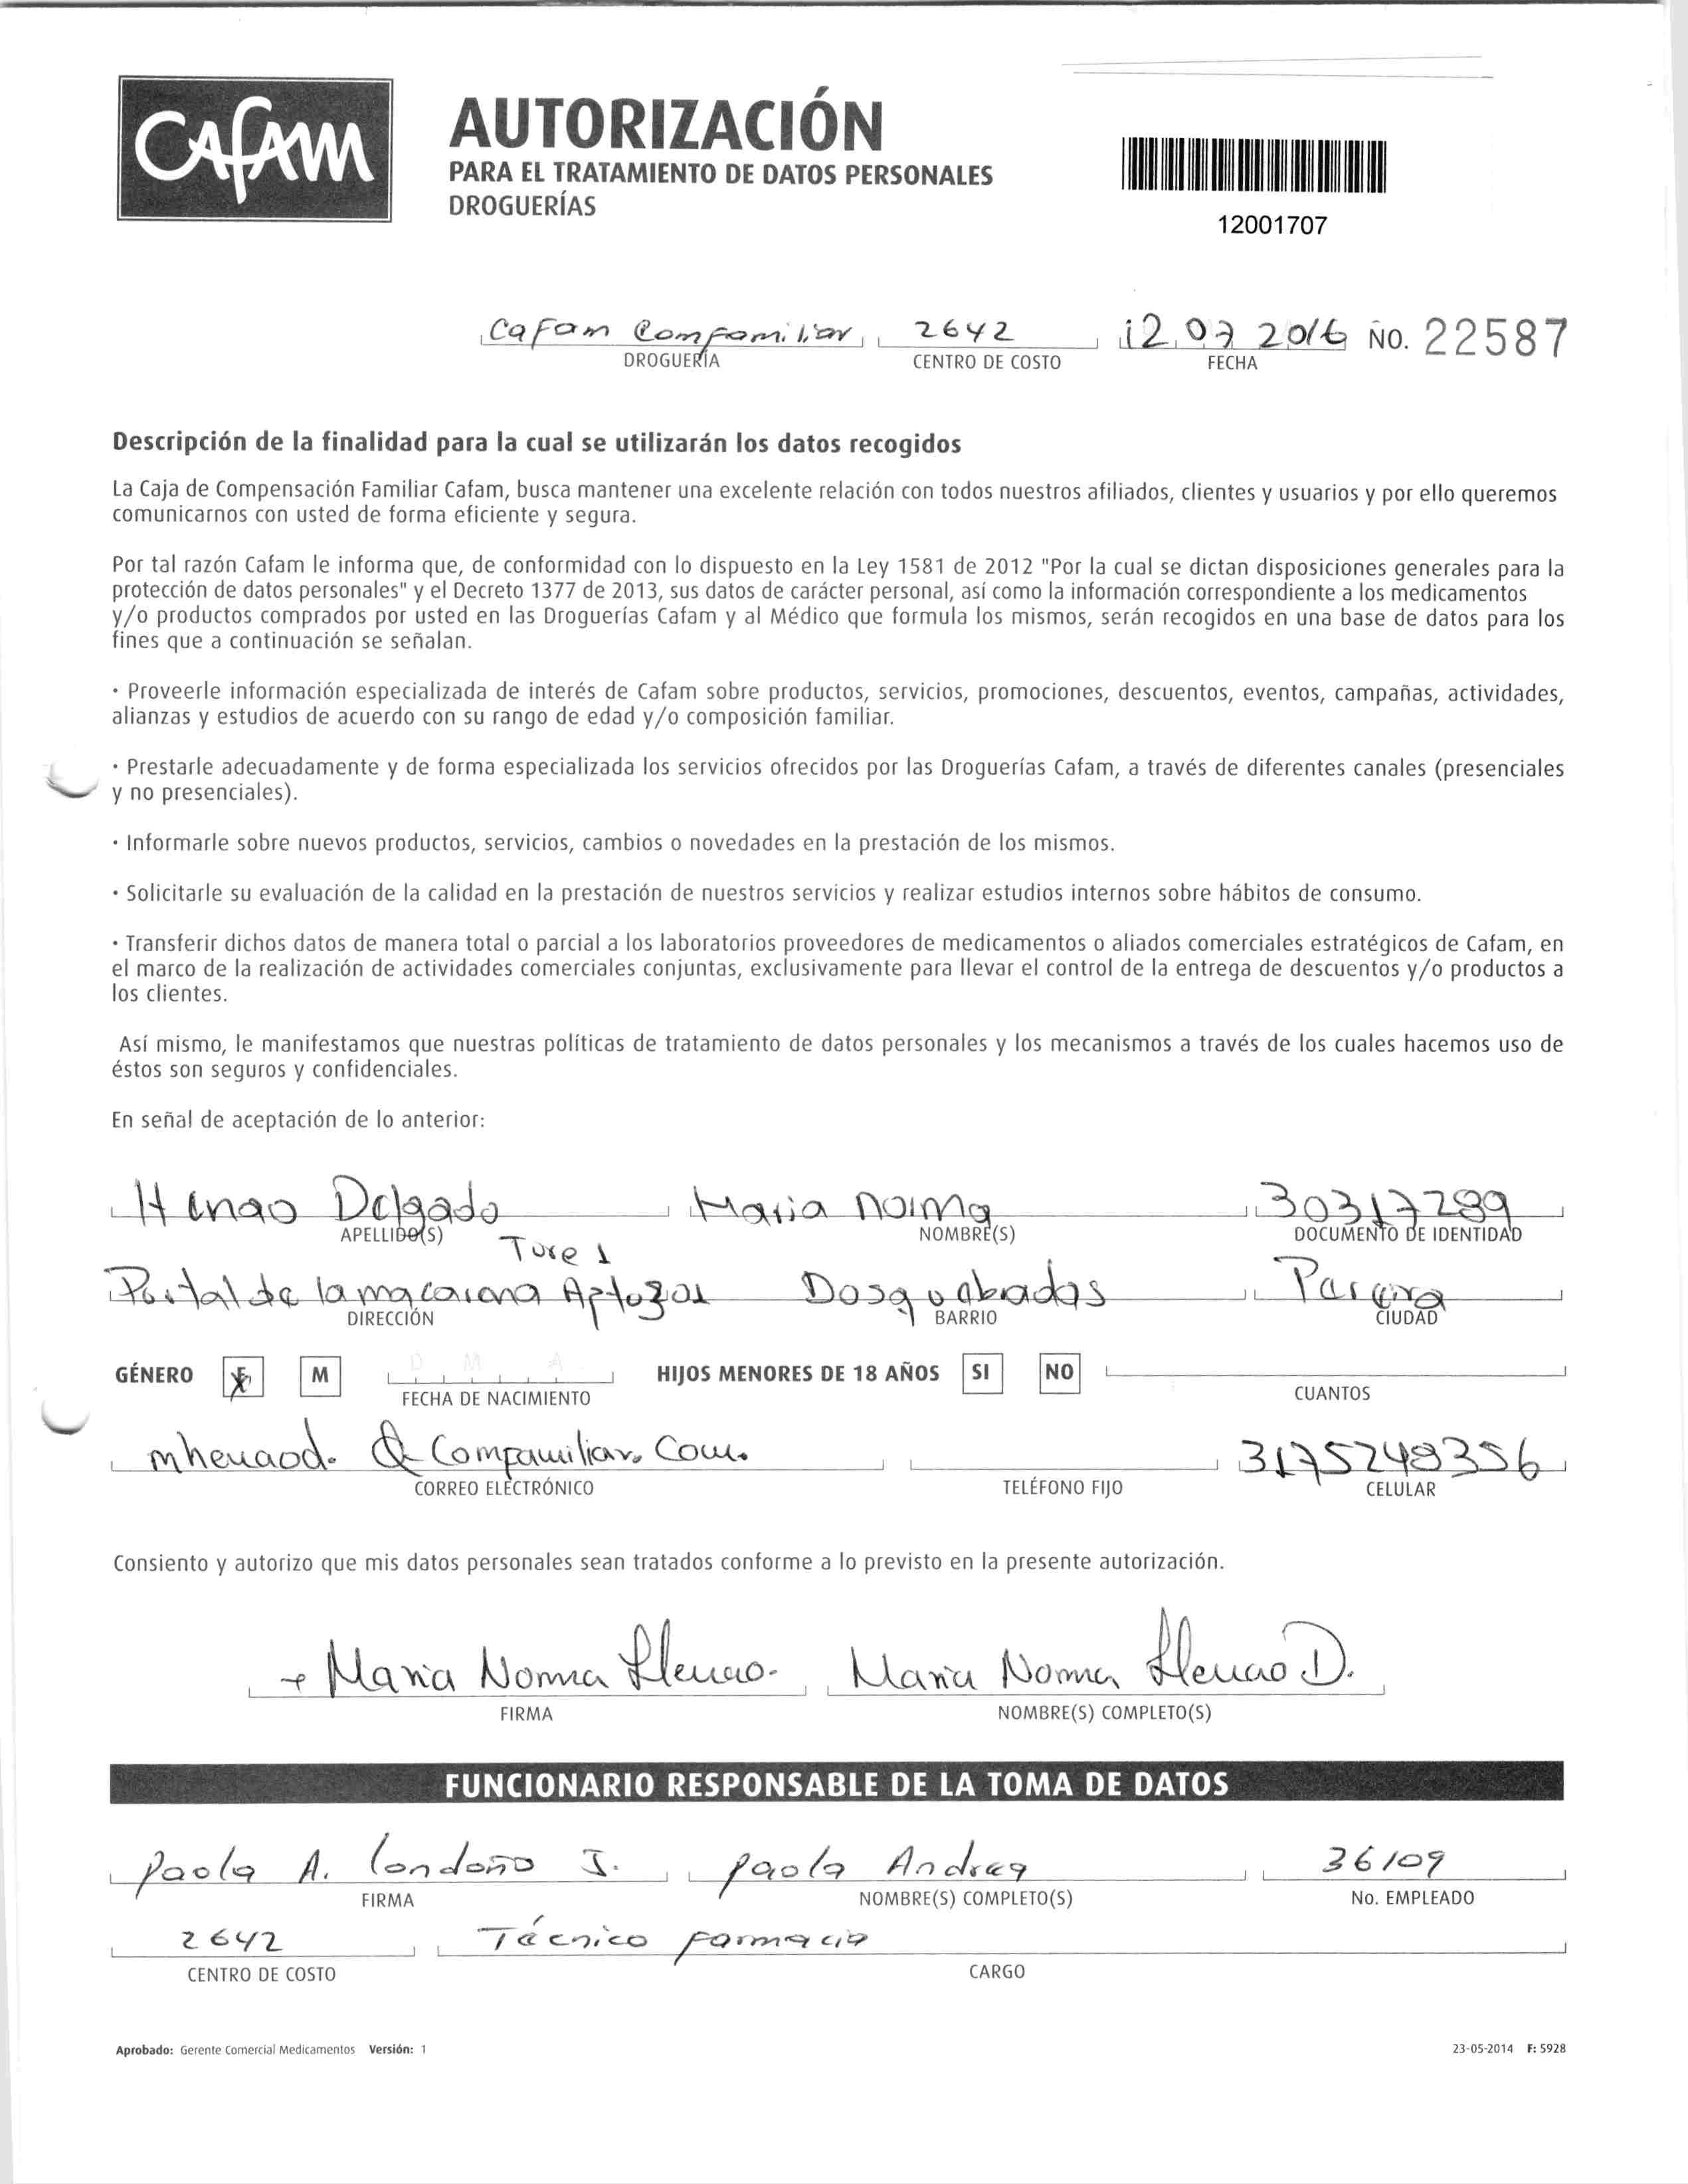 CAFAM
AUTORIZACIÓN
PARA EL TRATAMIENTO DE DATOS PERSONALES
DROGUERÍAS
12001707
Cafam Comfamiliar 2642 12 07 2016 NO. 22587
DROGUERÍA CENTRO DE COSTO FECHA
Descripción de la finalidad para la cual se utilizarán los datos recogidos
La Caja de Compensación Familiar Cafam, busca mantener una excelente relación con todos nuestros afiliados, clientes y usuarios y por ello queremos
comunicarnos con usted de forma eficiente y segura.
Por tal razón Cafam le informa que, de conformidad con lo dispuesto en la Ley 1581 de 2012 "Por la cual se dictan disposiciones generales para la
protección de datos personales" y el Decreto 1377 de 2013, sus datos de carácter personal, así como la información correspondiente a los medicamentos
y/o productos comprados por usted en las Droguerías Cafam y al Médico que formula los mismos, serán recogidos en una base de datos para los
fines que a continuación se señalan.
· Proveerle información especializada de interés de Cafam sobre productos, servicios, promociones, descuentos, eventos, campañas, actividades,
alianzas y estudios de acuerdo con su rango de edad y/o composición familiar.
· Prestarle adecuadamente y de forma especializada los servicios ofrecidos por las Droguerías Cafam, a través de diferentes canales (presenciales
y no presenciales).
· Informarle sobre nuevos productos, servicios, cambios o novedades en la prestación de los mismos.
· Solicitarle su evaluación de la calidad en la prestación de nuestros servicios y realizar estudios internos sobre hábitos de consumo.
· Transferir dichos datos de manera total o parcial a los laboratorios proveedores de medicamentos o aliados comerciales estratégicos de Cafam, en
el marco de la realización de actividades comerciales conjuntas, exclusivamente para llevar el control de la entrega de descuentos y/o productos a
los clientes.
Así mismo, le manifestamos que nuestras políticas de tratamiento de datos personales y los mecanismos a través de los cuales hacemos uso de
éstos son seguros y confidenciales.
En señal de aceptación de lo anterior:
Henao Delgado Maria Norma 30317289
APELLIDO(S) NOMBRE(S) DOCUMENTO DE IDENTIDAD
Torre 1
Portal de la macarena Apto 301 Dosquebradas Pereira
DIRECCIÓN BARRIO CIUDAD
GÉNERO F M D M A HIJOS MENORES DE 18 AÑOS SI NO
FECHA DE NACIMIENTO CUANTOS
mhenaod. @ Comfamiliar. Com. 3175248356
CORREO ELECTRÓNICO TELÉFONO FIJO CELULAR
Consiento y autorizo que mis datos personales sean tratados conforme a lo previsto en la presente autorización.
Maria Norma Henao. Maria Norma Henao D.
FIRMA NOMBRE(S) COMPLETO(S)
FUNCIONARIO RESPONSABLE DE LA TOMA DE DATOS
Paola A. Londoño J. Paola Andrea 36109
FIRMA NOMBRE(S) COMPLETO(S) No. EMPLEADO
2642 Técnico farmacia
CENTRO DE COSTO CARGO
Aprobado: Gerente Comercial Medicamentos Versión: 1 23-05-2014 F: 5928